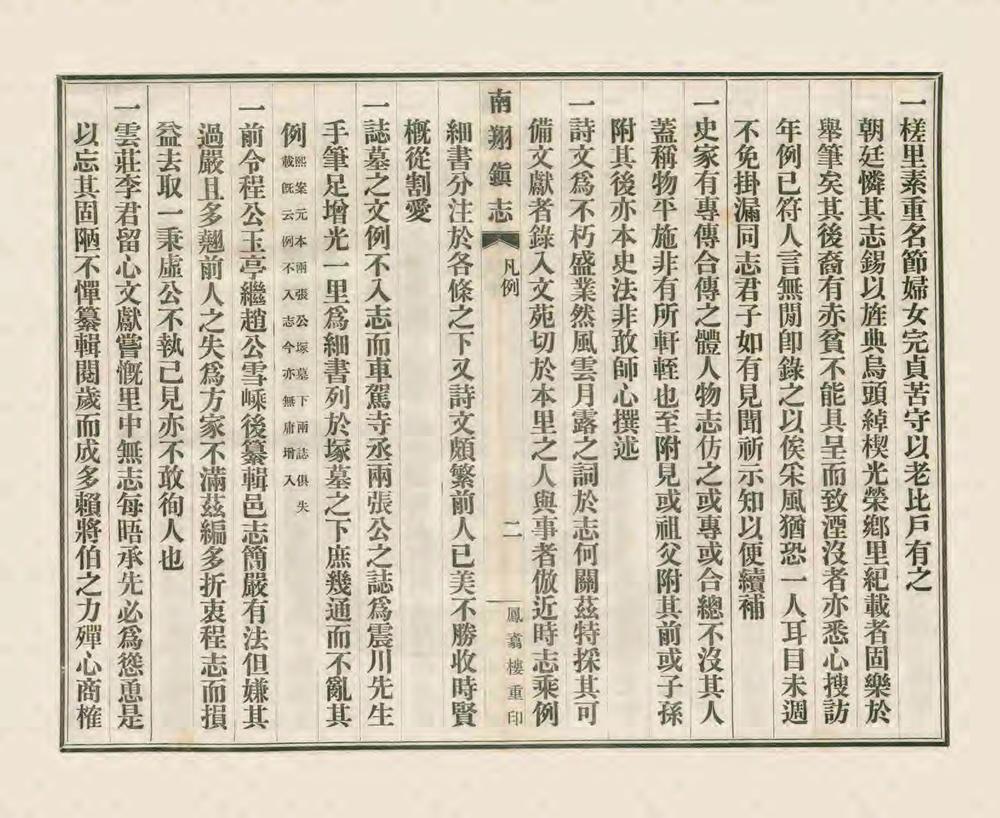 一槎里素重名節婦女完貞苦守以老比戶有之
朝廷憐其志錫以旌典烏頭綽楔光榮鄉里紀載者固樂於
舉筆矣其後裔有赤貧不能具呈而致湮沒者亦悉心搜訪
年例已符人言無閒即錄之以俟采風猶恐一人耳目未週
不免掛漏同志君子如有見聞祈示知以便續補
一史家有專傳合傳之體人物志仿之或專或合總不沒其人
蓋稱物平施非有所軒輊也至附見或祖父附其前或子孫
附其後亦本史法非敢師心撰述
一詩文爲不朽盛業然風雲月露之詞於志何關茲特採其可
備文獻者錄入文苑切於本里之人與事者倣近時志乘例
南翔鎮志
凡例
二
鳳翥樓重印
細書分注於各條之下又詩文頗繁前人已美不勝收時賢
槪從割愛
一誌墓之文例不入志而車駕寺丞兩張公之誌爲震川先生
手筆足增光一里爲細書列於塚墓之下庶幾通而不亂其
例
熙案元本兩張公塚墓下兩誌俱失
載旣云例不入志今亦無庸增入
一前令程公玉亭繼趙公雪嵊後纂輯邑志簡嚴有法但嫌其
過嚴且多翹前人之失爲方家不滿茲編多折衷程志而損
益去取一秉虛公不執已見亦不敢徇人也
一雲莊李君留心文獻嘗慨里中無志每晤承先必爲慫恿是
以忘其固陋不憚纂輯閱歲而成多賴將伯之力殫心商榷